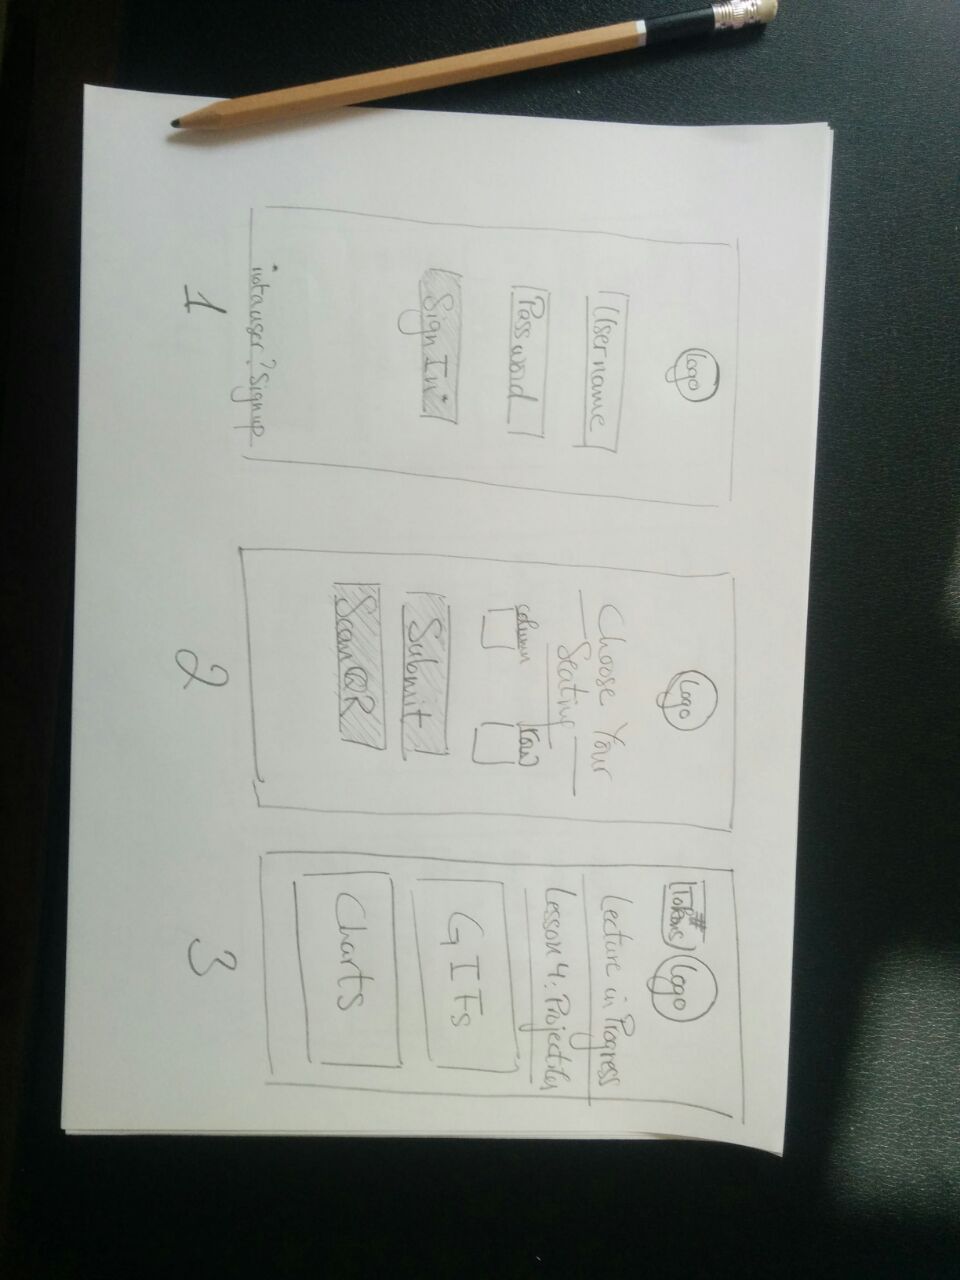 Logo
Username
Password
Sign In*
*not a user? Sign up
1
Logo
Choose Your
Seating
column row
Submit
Scan QR
2
#
Tokens
Logo
Lecture in Progress
Lesson 4: Projectiles
GIFs
Charts
3